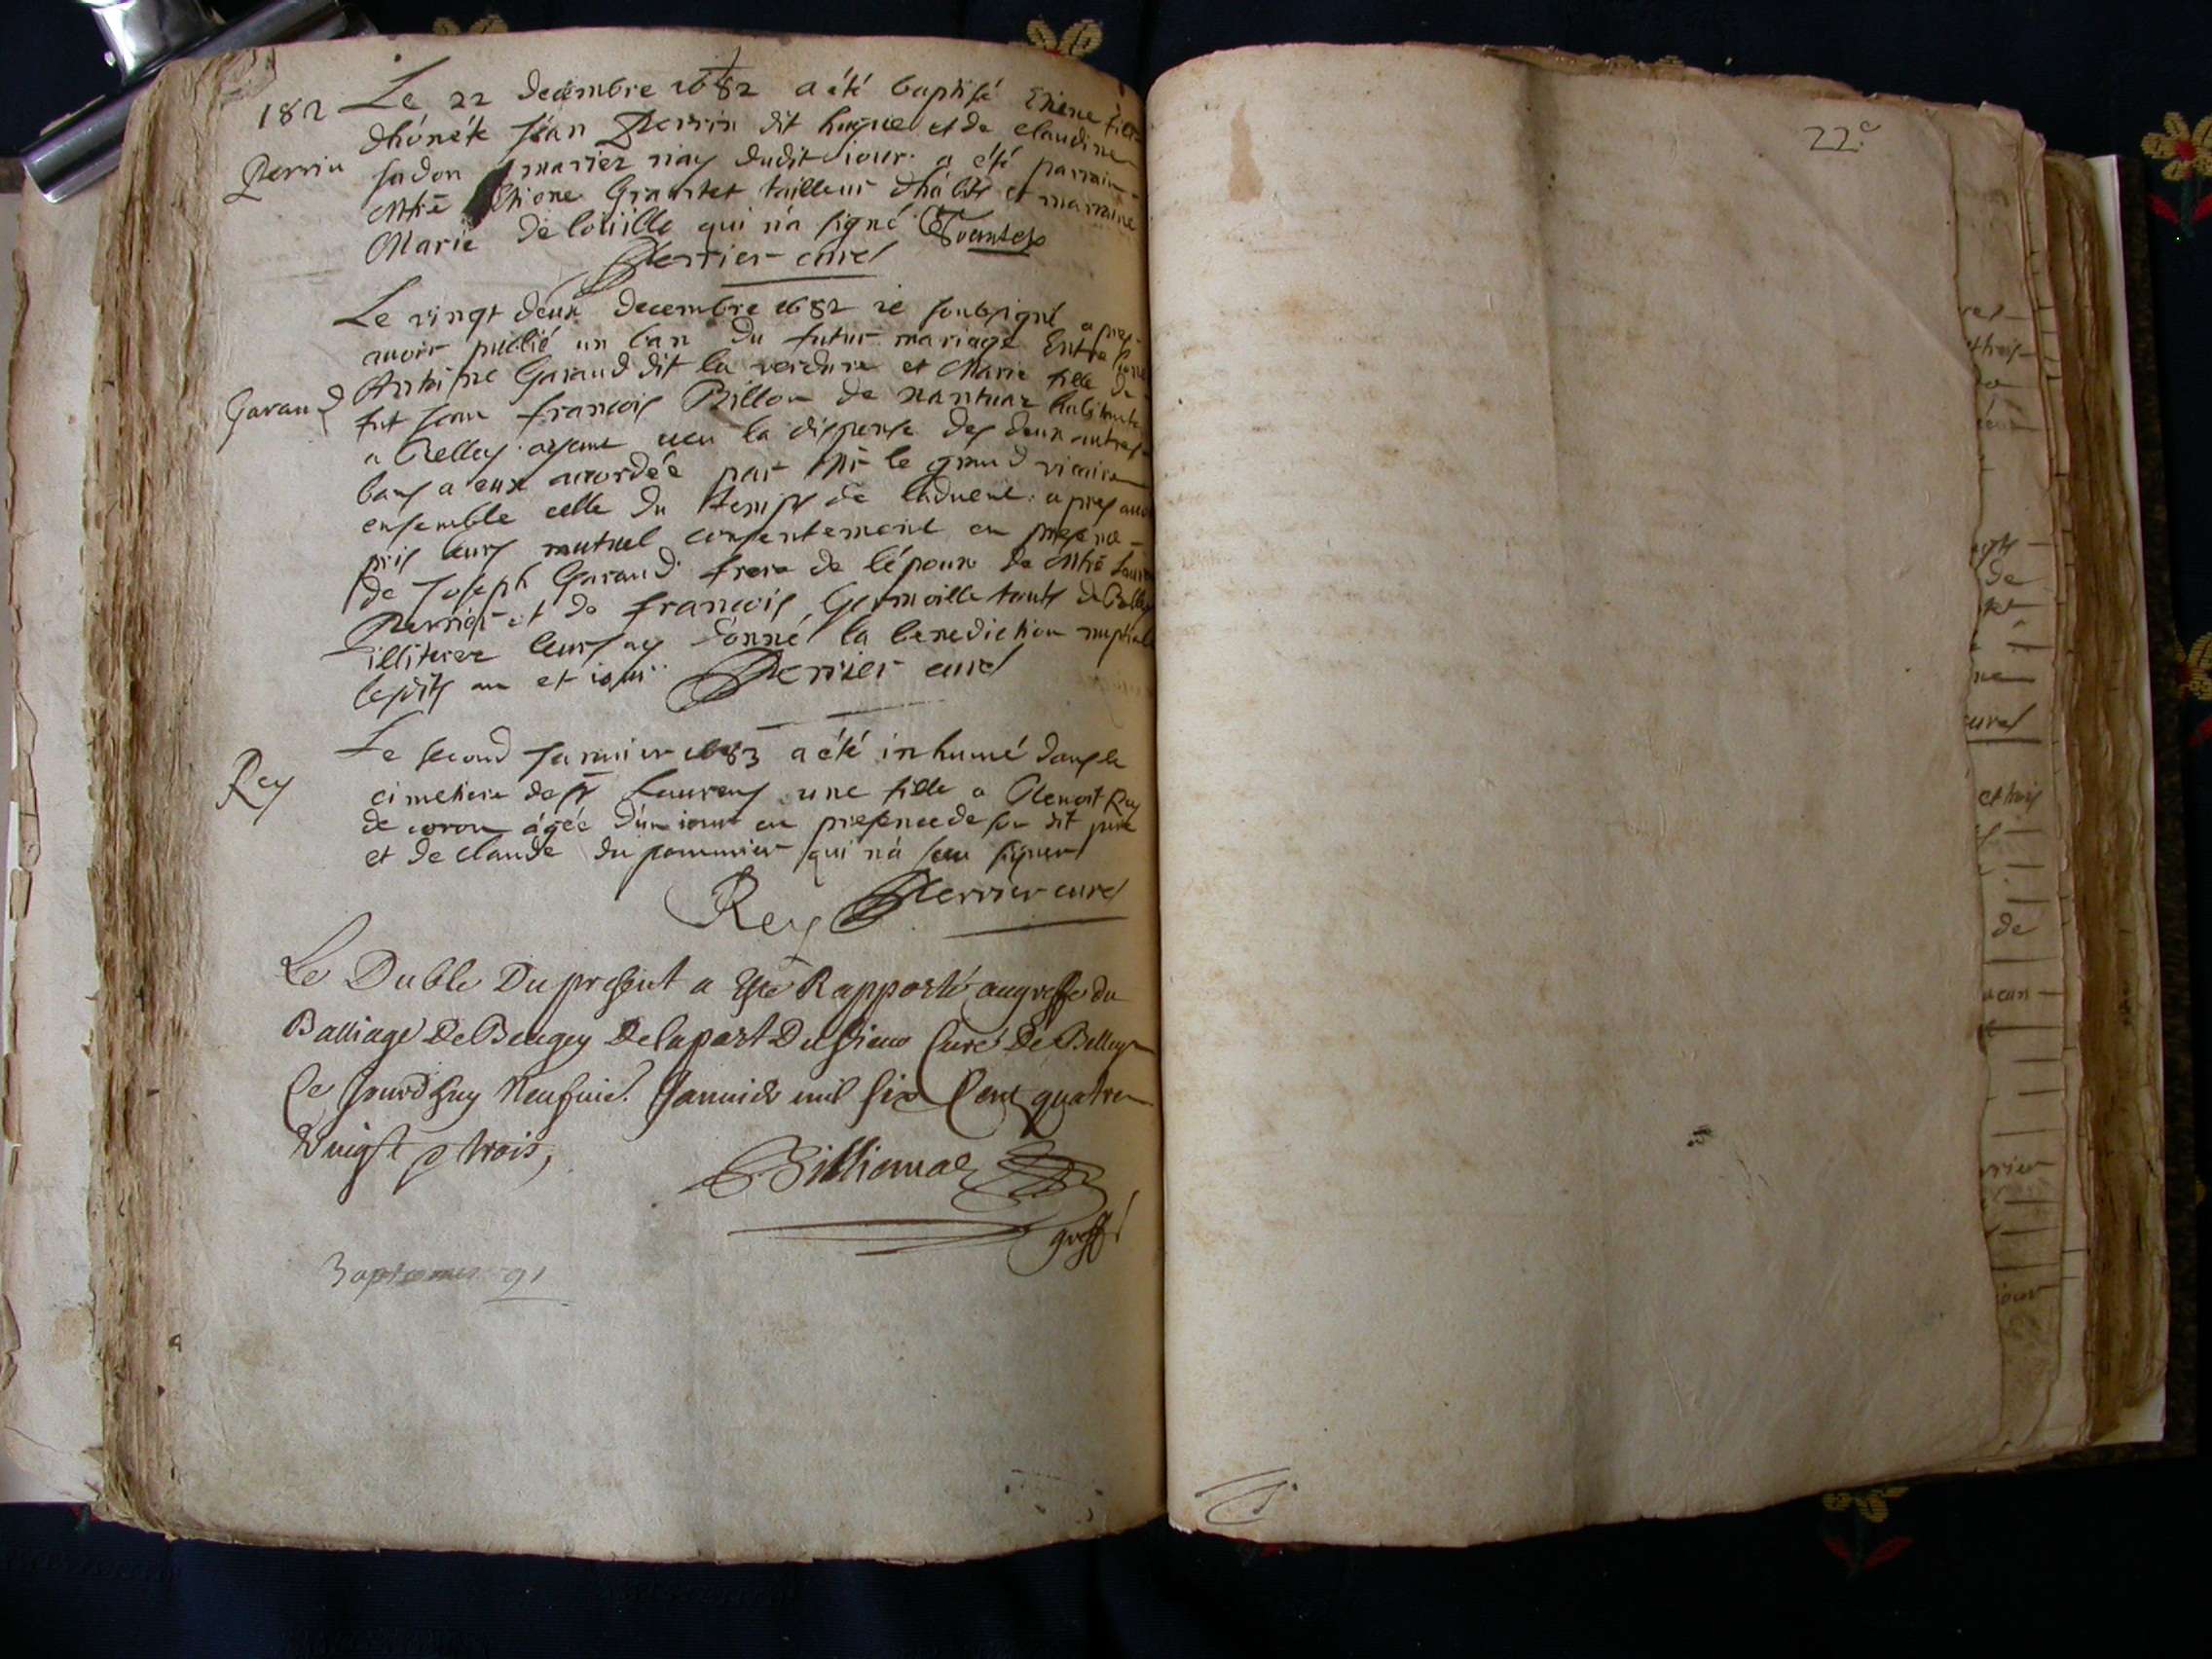 182 Le 22 decembre 1682 a été baptisé Etiene fils
dhónéte Jéan Perrin dit hugue et de claudine
Perrin
sadon mariez nay dudit iour. a été parrain
Mtre Etiene Grantet tailleur dhabits et marraine
Marie de loüille qui n'a signé Grantet
Perrier curé
Le vingt deux decembre 1682 ie soubsigné apres
auoir publié un ban du futur mariage Entre
Garaud
Anthoine Garaud dit la verdure et Marie fille de
fut Jean francois Billon de nantuaz habitante
a Belley ayant eeu la dispense des deux autres
bans a eux accordée par Mr le grand vicaire
ensemble celle du temps de laduent. apres auoir
pris leurs mutuel consentement en presence
de Joseph Garaud frere de lépoux de Mtre
Perrier et de francois Germoille touts de Belley
illiterez leurs ay donné la benediction nuptiale
lesdits an et iour Perrier curé
Le second Januier 1683 a été inhumé dans le
Rey
cimetiere de st Laurens une fille a Benoit Rey
de coron ágéé d'un iour en presence de son dit pere
et de claude du pommier qui n'a sceu signer
Rey Perrier curé
Le Duble Du present a Esté Rapporté au greffe du
Balliage De Beugey De la part Du sieur Curé De Belley
Ce Jourdhuy Neufuie. Januier mil six Cent quatre
Vingt et trois,
Billiomaz
greff
Baptemes 91
22e